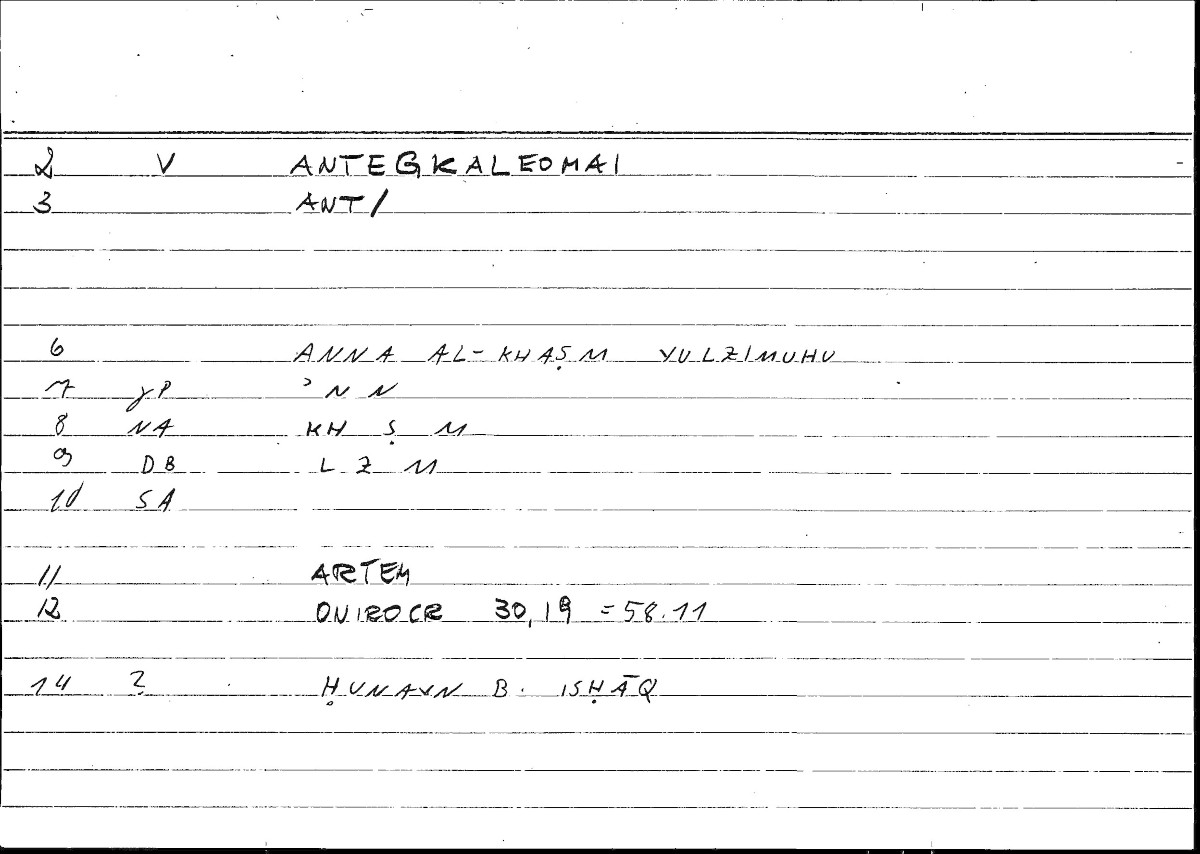 2 V ANTEGKALEOMAI
3 ANT/
6 ANNA AL-KHAṢM YULZIMUHU
7 YP ʾNN
8 NA KH Ṣ M
9 DB L Z M
10 SA
11 ARTEM
12 ONIROCR 30,19 =58.11
14 2 ḤUNAYN B. ISḤĀQ